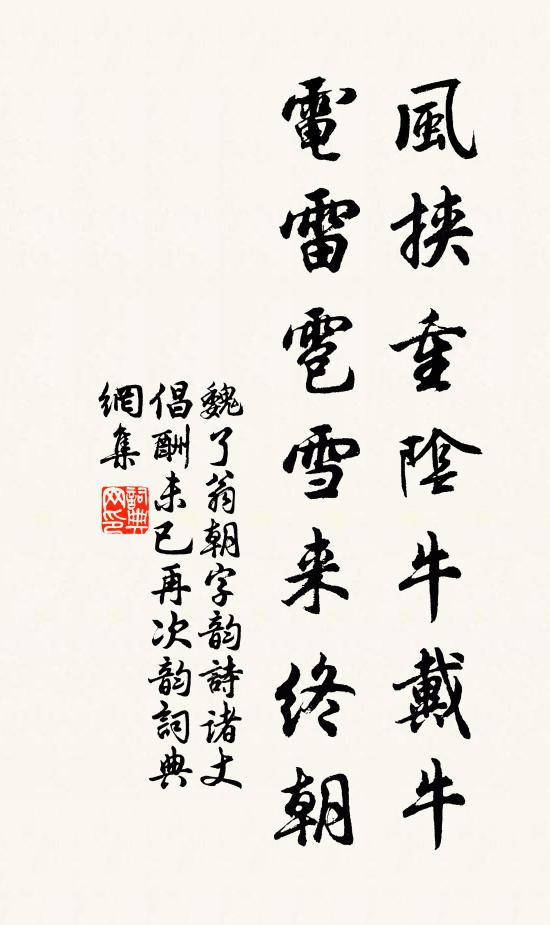 風挾重陰牛戴牛
電雷雹雪来終朝
魏了翁朝字韵詩诸丈
倡酬未已再次韵詞典
網集
詞典
网印